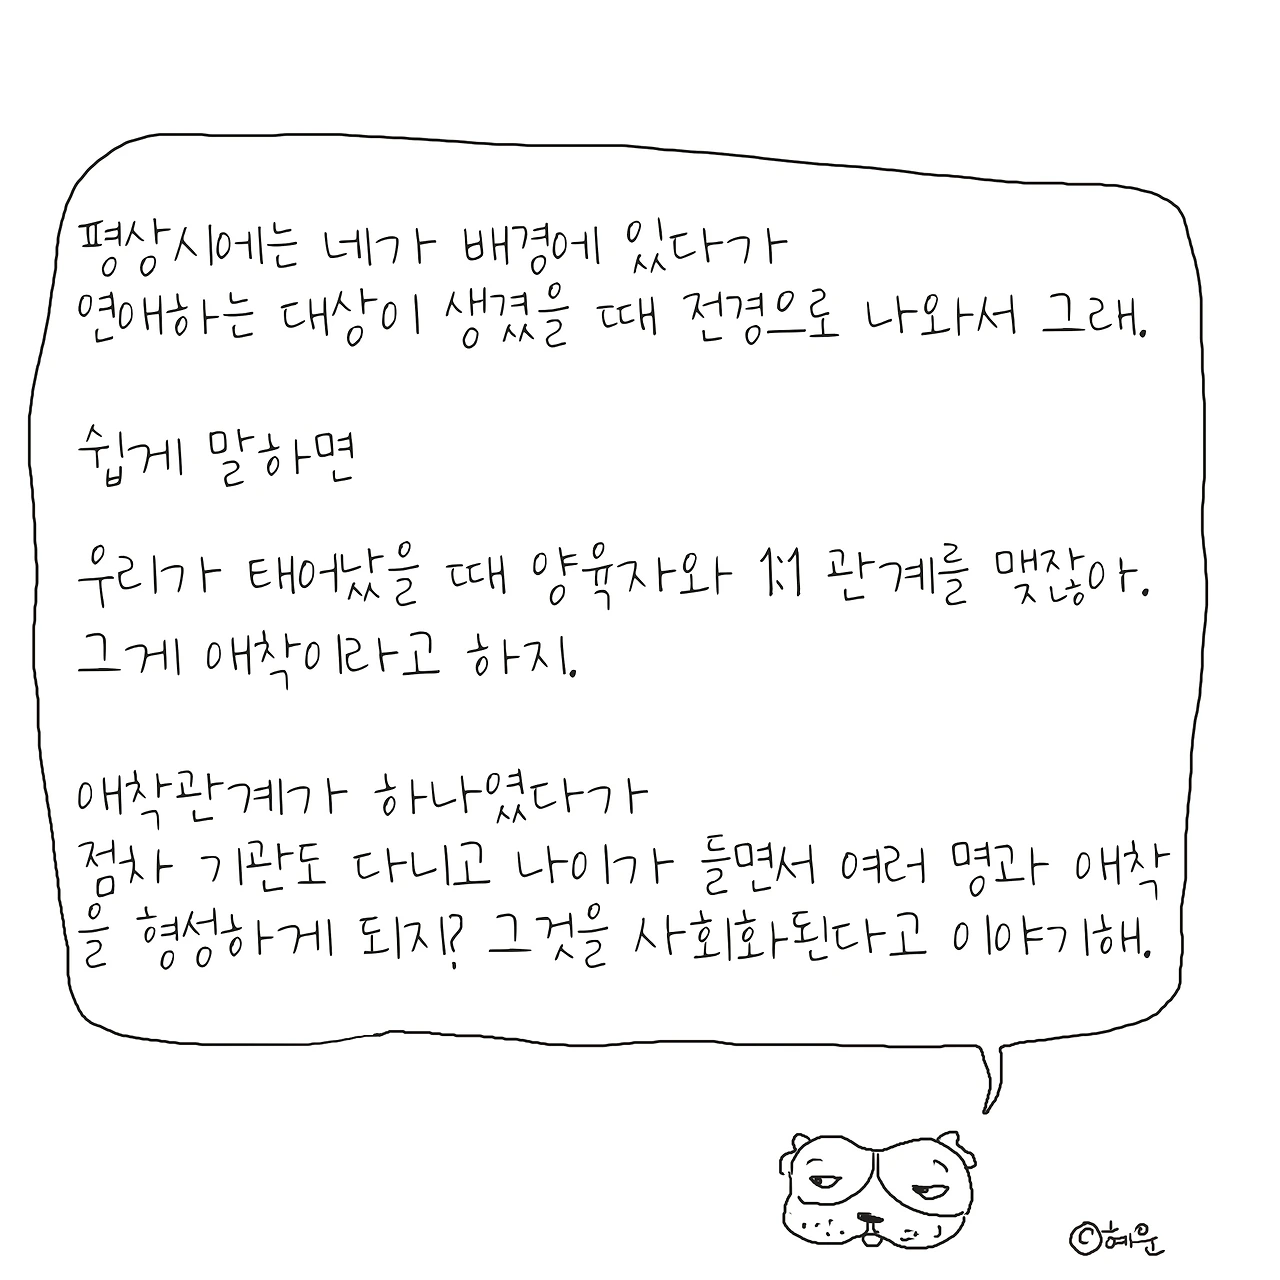 평상시에는 네가 배경에 있다가
연애하는 대상이 생겼을 때 전경으로 나와서 그래.
쉽게 말하면
우리가 태어났을 때 양육자와 1:1 관계를 맺잖아.
그게 애착이라고 하지.
애착관계가 하나였다가
점차 기관도 다니고 나이가 들면서 여러 명과 애착
을 형성하게 되지? 그것을 사회화된다고 이야기해.
©혜운